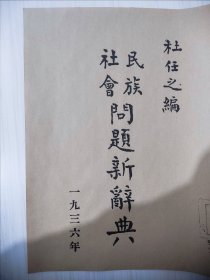 杜任之編
民族
社會
問題新辭典
一九三六年